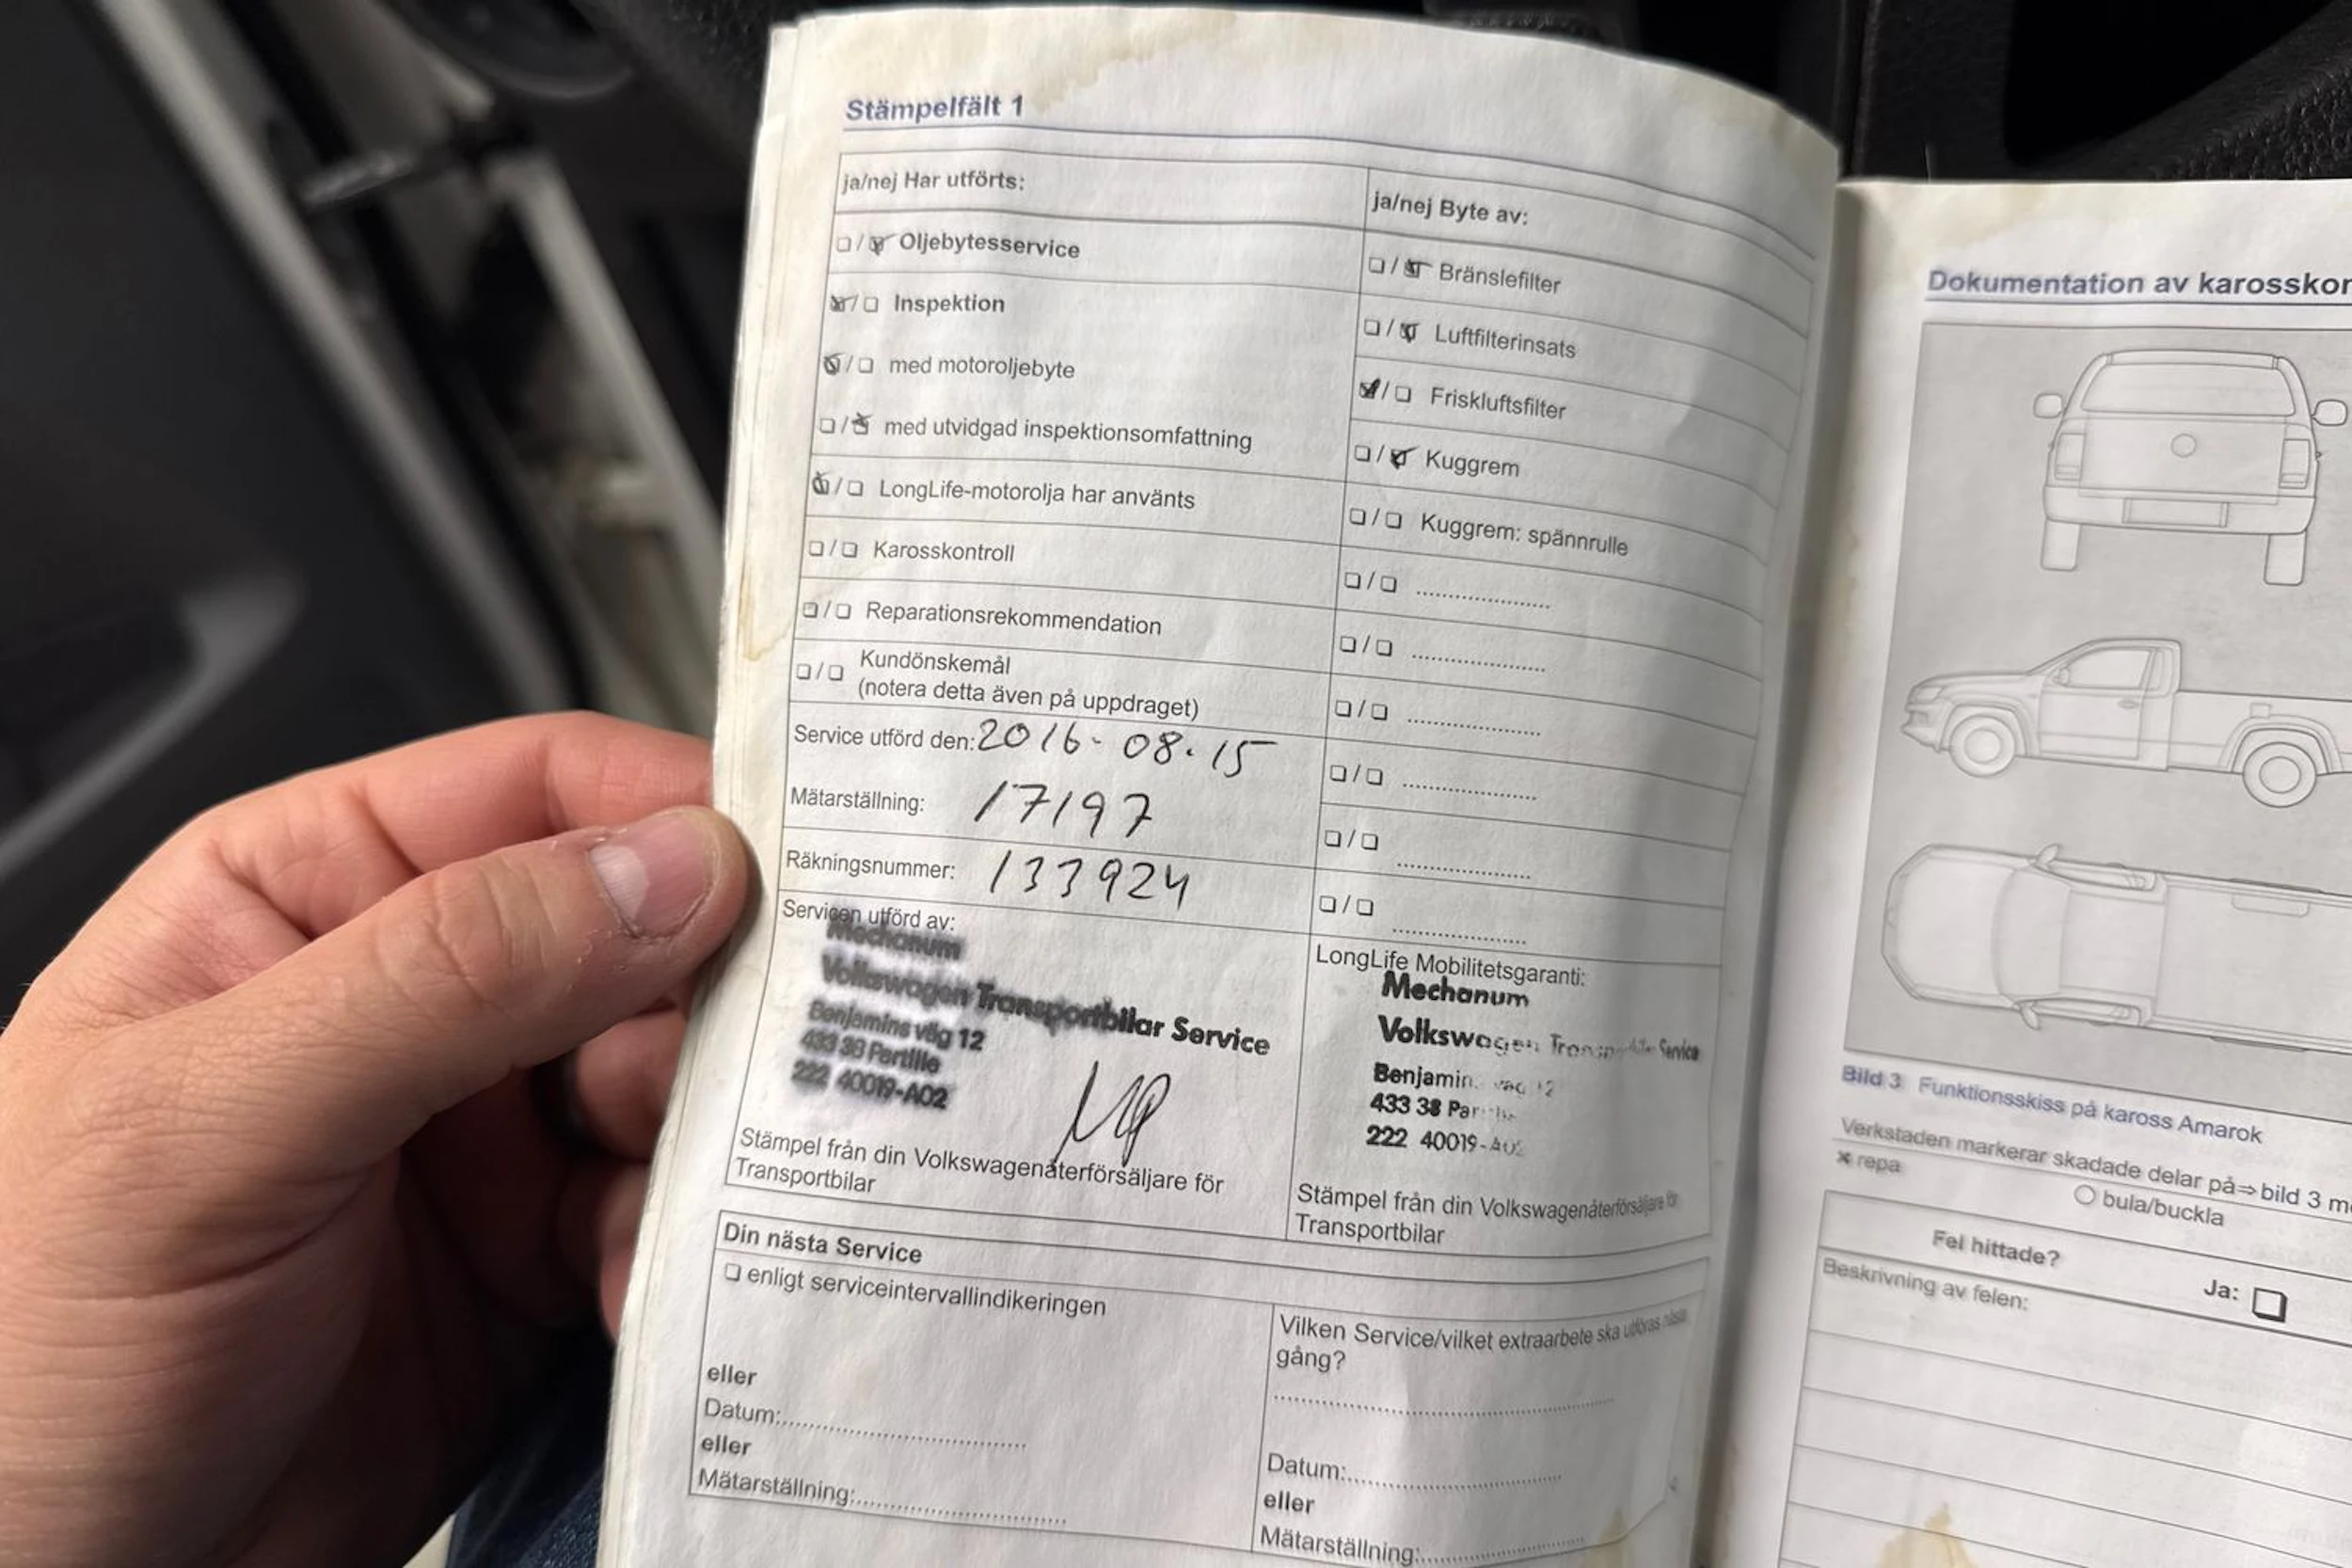 Stämpelfält 1
ja/nej Har utförts:
Oljebytesservice
Inspektion
med motoroljebyte
med utvidgad inspektionsomfattning
LongLife-motorolja har använts
Karosskontroll
Reparationsrekommendation
Kundönskemål
(notera detta även på uppdraget)
Service utförd den: 2016-08-15
Mätarställning: 17197
Räkningsnummer: 133924
Servicen utförd av:
Mechanum
Volkswagen Transportbilar Service
Benjamins väg 12
433 38 Partille
222 40019-A02
Stämpel från din Volkswagenåterförsäljare för
Transportbilar
ja/nej Byte av:
Bränslefilter
Luftfilterinsats
Friskluftsfilter
Kuggrem
Kuggrem: spännrulle
LongLife Mobilitetsgaranti:
Mechanum
Volkswagen Transportbilar Service
Benjamins väg 12
433 38 Partille
222 40019-A02
Stämpel från din Volkswagenåterförsäljare för
Transportbilar
Din nästa Service
enligt serviceintervallindikeringen
eller
Datum:
eller
Mätarställning:
Vilken Service/vilket extraarbete ska utföras nästa
gång?
Datum:
eller
Mätarställning:
Dokumentation av karosskon
Bild 3 Funktionsskiss på kaross Amarok
Verkstaden markerar skadade delar på⇒bild 3 me
× repa
bula/buckla
Fel hittade?
Ja:
Beskrivning av felen: